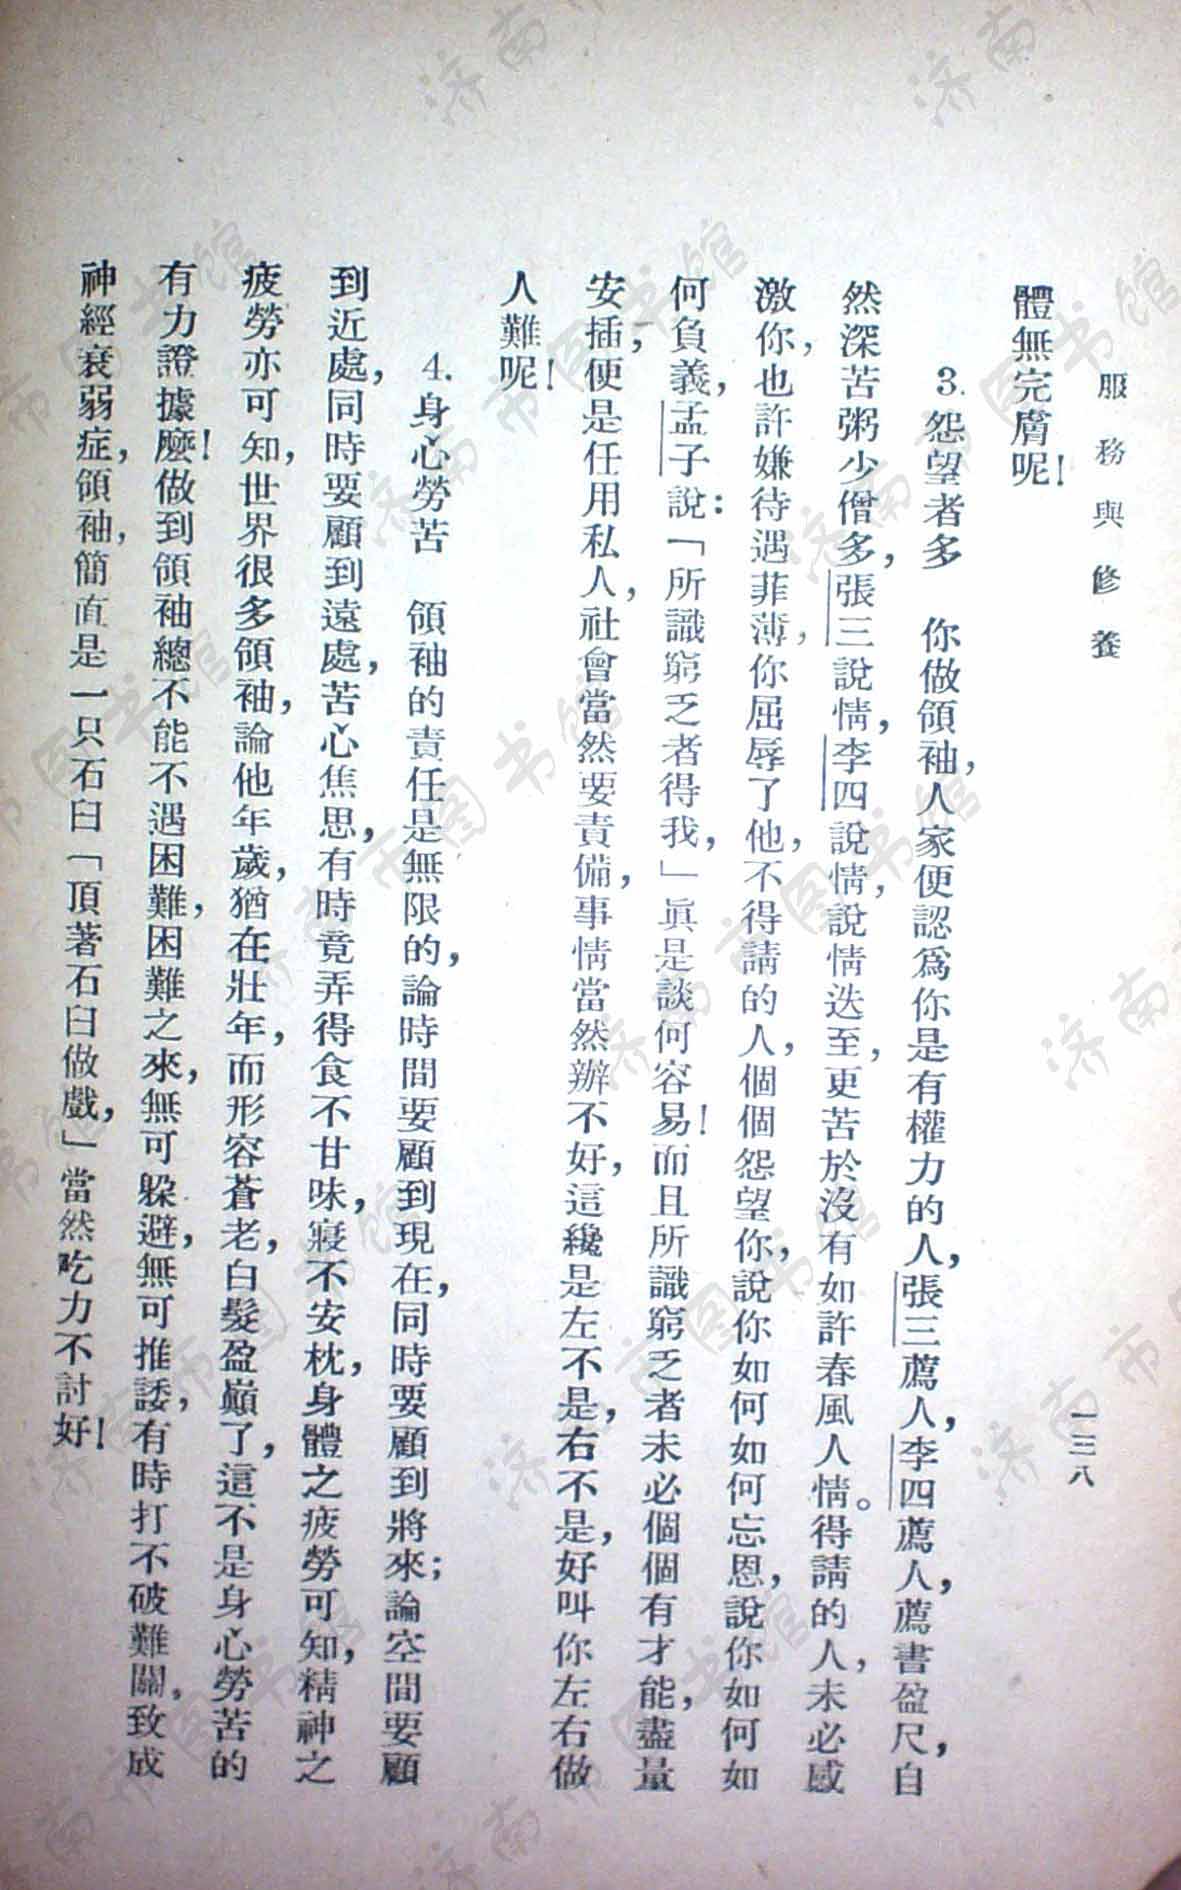 服務與修養
一三八
體無完膚呢！
3. 怨望者多　你做領袖，人家便認爲你是有權力的人，張三薦人，李四薦人，薦書盈尺，自
然深苦粥少僧多，張三說情，李四說情，說情迭至，更苦於沒有如許春風人情。得請的人，未必感
激你，也許嫌待遇菲薄，你屈辱了他，不得請的人，個個怨望你，說你如何如何忘恩，說你如何如
何負義，孟子說：「所識窮乏者得我，」眞是談何容易！而且所識窮乏者未必個個有才能，盡量
安插，便是任用私人，社會當然要責備，事情當然辦不好，這纔是左不是，右不是，好叫你左右做
人難呢！
4. 身心勞苦　領袖的責任是無限的，論時間要顧到現在，同時要顧到將來；論空間要顧
到近處，同時要顧到遠處，苦心焦思，有時竟弄得食不甘味，寢不安枕，身體之疲勞可知，精神之
疲勞亦可知，世界很多領袖，論他年歲，猶在壯年，而形容蒼老，白髮盈巔了，這不是身心勞苦的
有力證據麼！做到領袖總不能不遇困難，困難之來，無可躲避，無可推諉，有時打不破難關，致成
神經衰弱症，領袖，簡直是一只石臼「頂著石臼做戲，」當然吃力不討好！
济南市图书馆